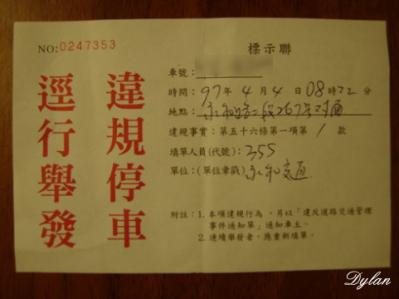 NO:0247353
標示聯
違規停車
逕行舉發
車號:
時間:97年4月4日08時22分
地點:永和路二段267号对面
違規事實:第五十六條第一項第1款
填單人員(代號):355
單位:(單位章戳)永和交通
附註:1.本項違規行為,另以「違反道路交通管理
事件通知單」通知車主。
2.連續舉發者,應重新填單。
Dylan